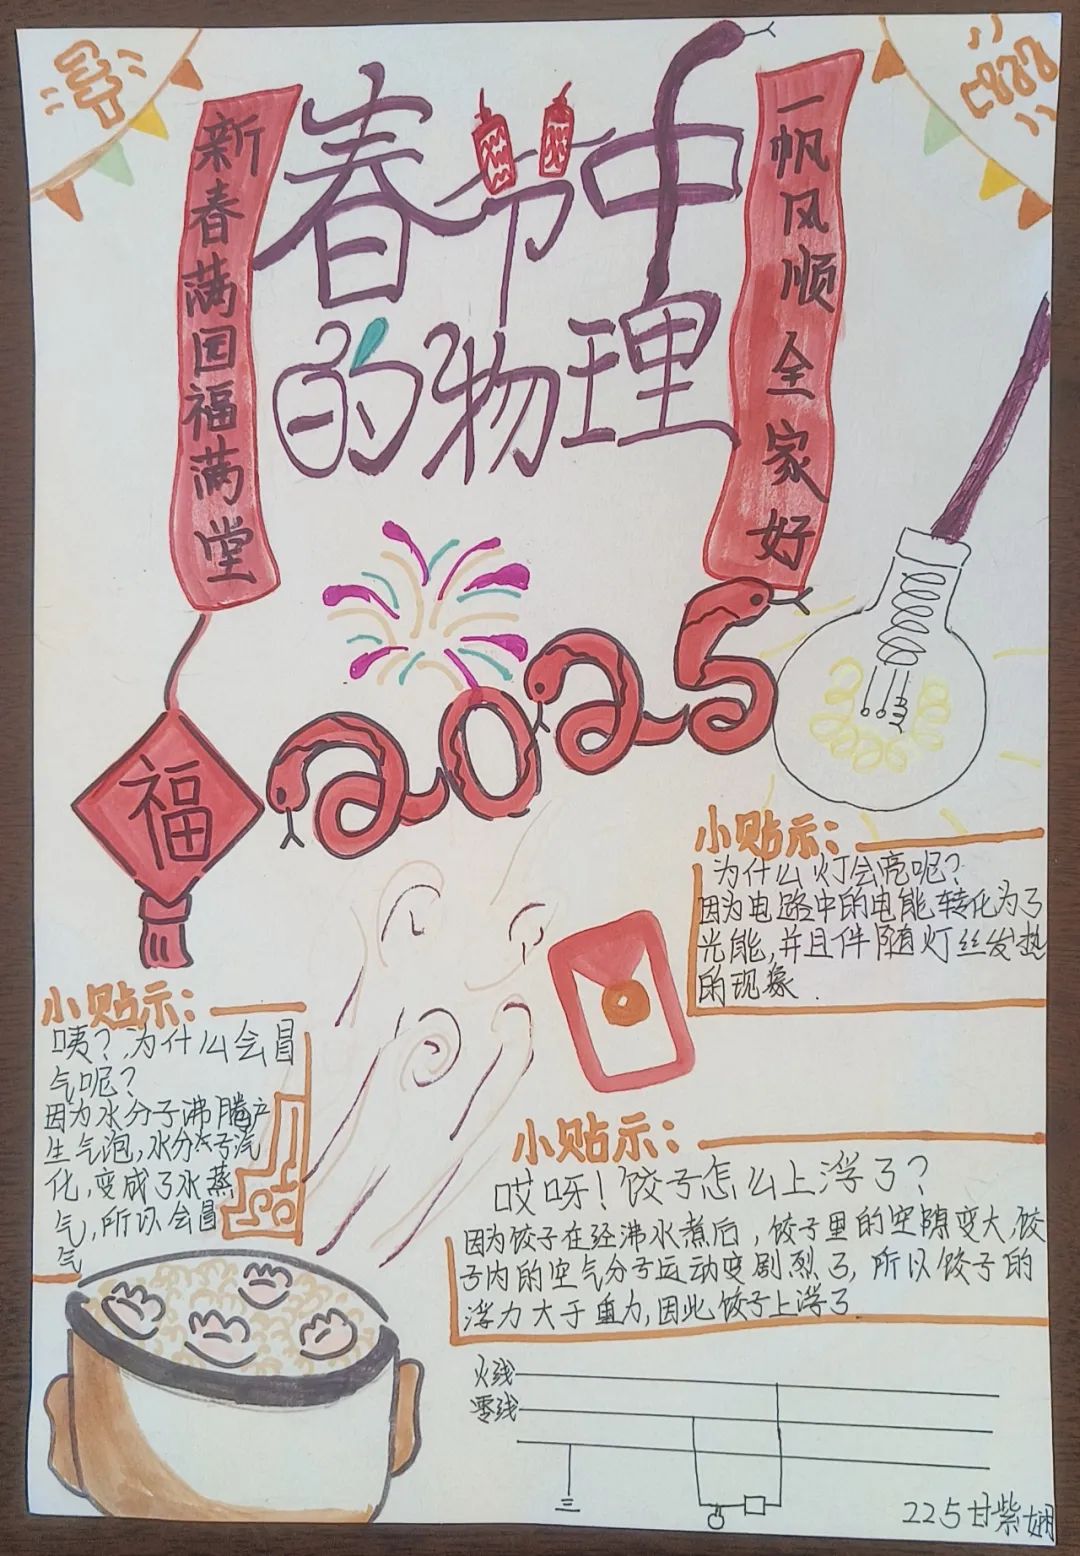 春节中
的物理
新春满园福满堂
一帆风顺全家好
2025
福
小贴示：
为什么灯会亮呢？
因为电路中的电能转化为了
光能，并且伴随灯丝发热
的现象．
小贴示：
咦？为什么会冒
气呢？
因为水分子沸腾产
生气泡，水分子汽
化，变成了水蒸
气，所以会冒
气
小贴示：
哎呀！饺子怎么上浮了？
因为饺子在经沸水煮后，饺子里的空隙变大，饺
子内的空气分子运动变剧烈了，所以饺子的
浮力大于重力，因此饺子上浮了
火线
零线
225甘紫娴